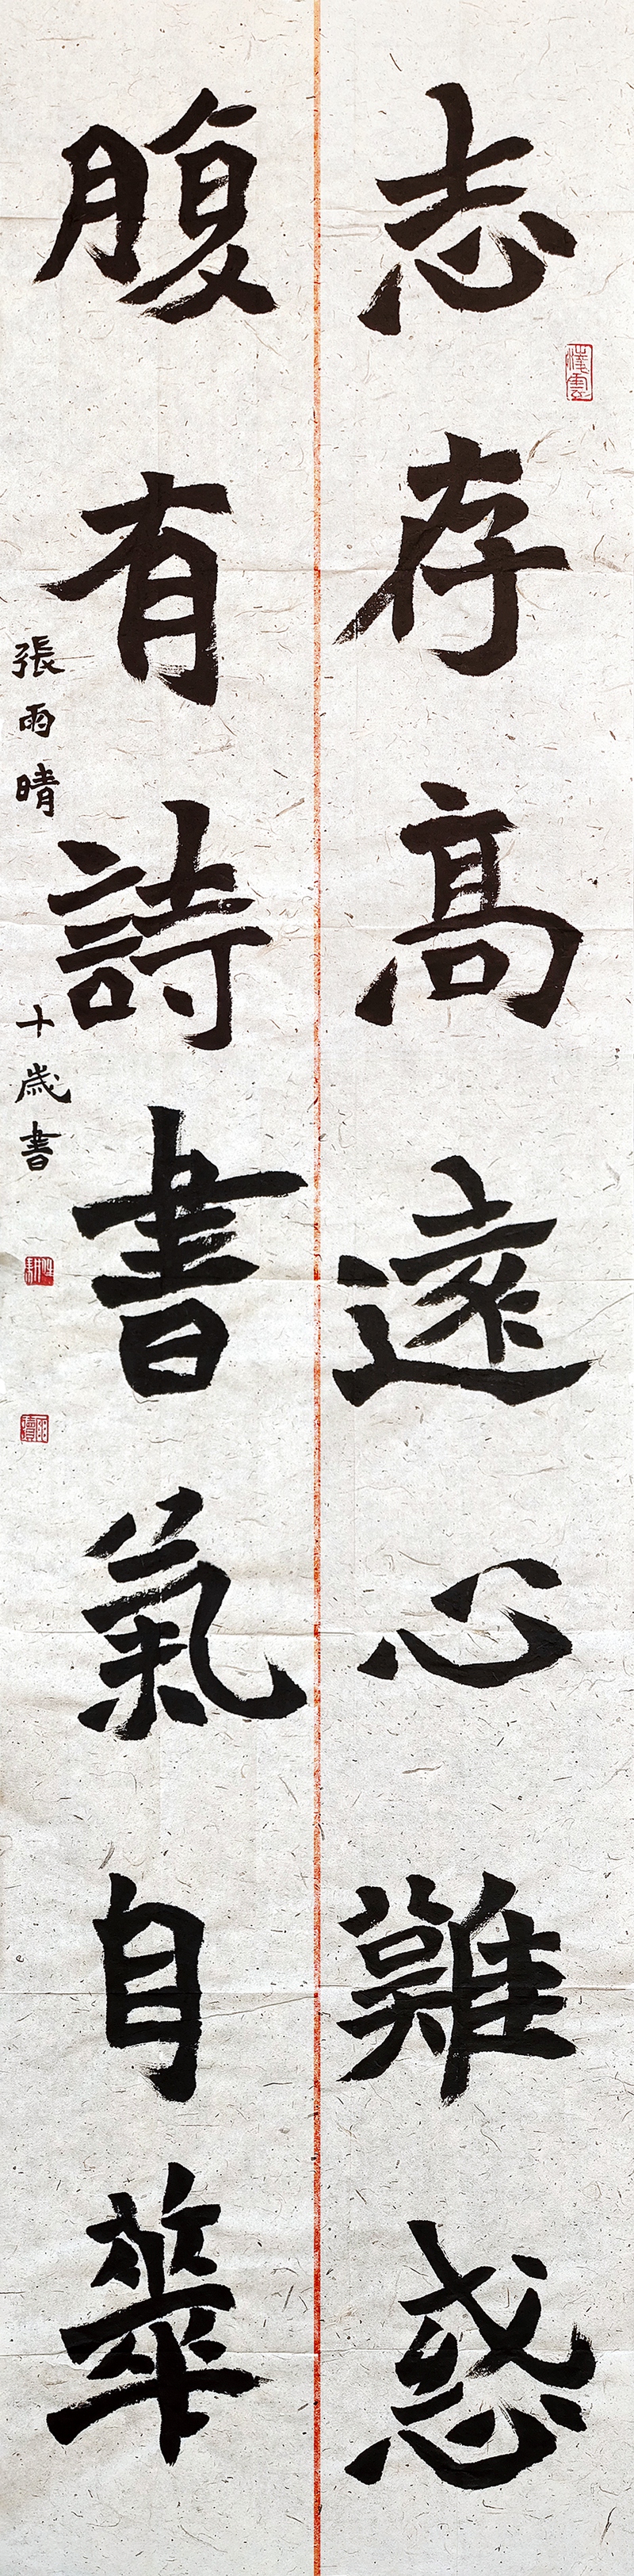 志存高遠心難惑
腹有詩書氣自華
張雨晴
十歲書